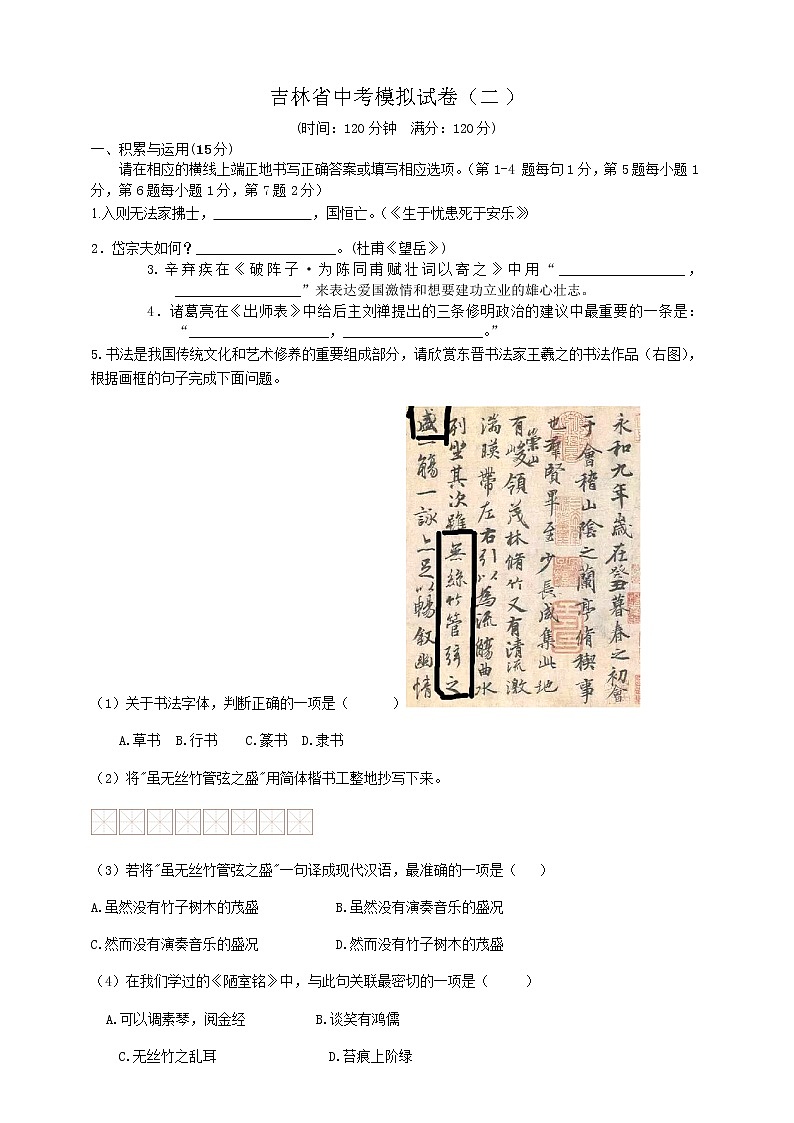 吉林省中考模拟试卷（二）
(时间：120分钟 满分：120分)
一、积累与运用(15分)
请在相应的横线上端正地书写正确答案或填写相应选项。（第1-4 题每句1分，第5题每小题1
分，第6题每小题1分，第7题2分）
1.入则无法家拂士，______________，国恒亡。（《生于忧患死于安乐》）
2．岱宗夫如何？____________________。（杜甫《望岳》）
3.辛弃疾在《破阵子·为陈同甫赋壮词以寄之》中用“__________________，
__________________”来表达爱国激情和想要建功立业的雄心壮志。
4．诸葛亮在《出师表》中给后主刘禅提出的三条修明政治的建议中最重要的一条是：
“____________________，____________________。”
5.书法是我国传统文化和艺术修养的重要组成部分，请欣赏东晋书法家王羲之的书法作品（右图），
根据画框的句子完成下面问题。
永和九年歲在癸丑暮春之初會
于會稽山陰之蘭亭脩禊事
也羣賢畢至少長咸集此地
有崇山峻領茂林脩竹又有清流激
湍暎帶左右引以為流觴曲水
列坐其次雖無絲竹管弦之
盛一觴一詠亦足以暢敘幽情
（1）关于书法字体，判断正确的一项是（ ）
A.草书 B.行书 C.篆书 D.隶书
（2）将"虽无丝竹管弦之盛"用简体楷书工整地抄写下来。
（3）若将"虽无丝竹管弦之盛"一句译成现代汉语，最准确的一项是（ ）
A.虽然没有竹子树木的茂盛 B.虽然没有演奏音乐的盛况
C.然而没有演奏音乐的盛况 D.然而没有竹子树木的茂盛
（4）在我们学过的《陋室铭》中，与此句关联最密切的一项是（ ）
A.可以调素琴，阅金经 B.谈笑有鸿儒
C.无丝竹之乱耳 D.苔痕上阶绿